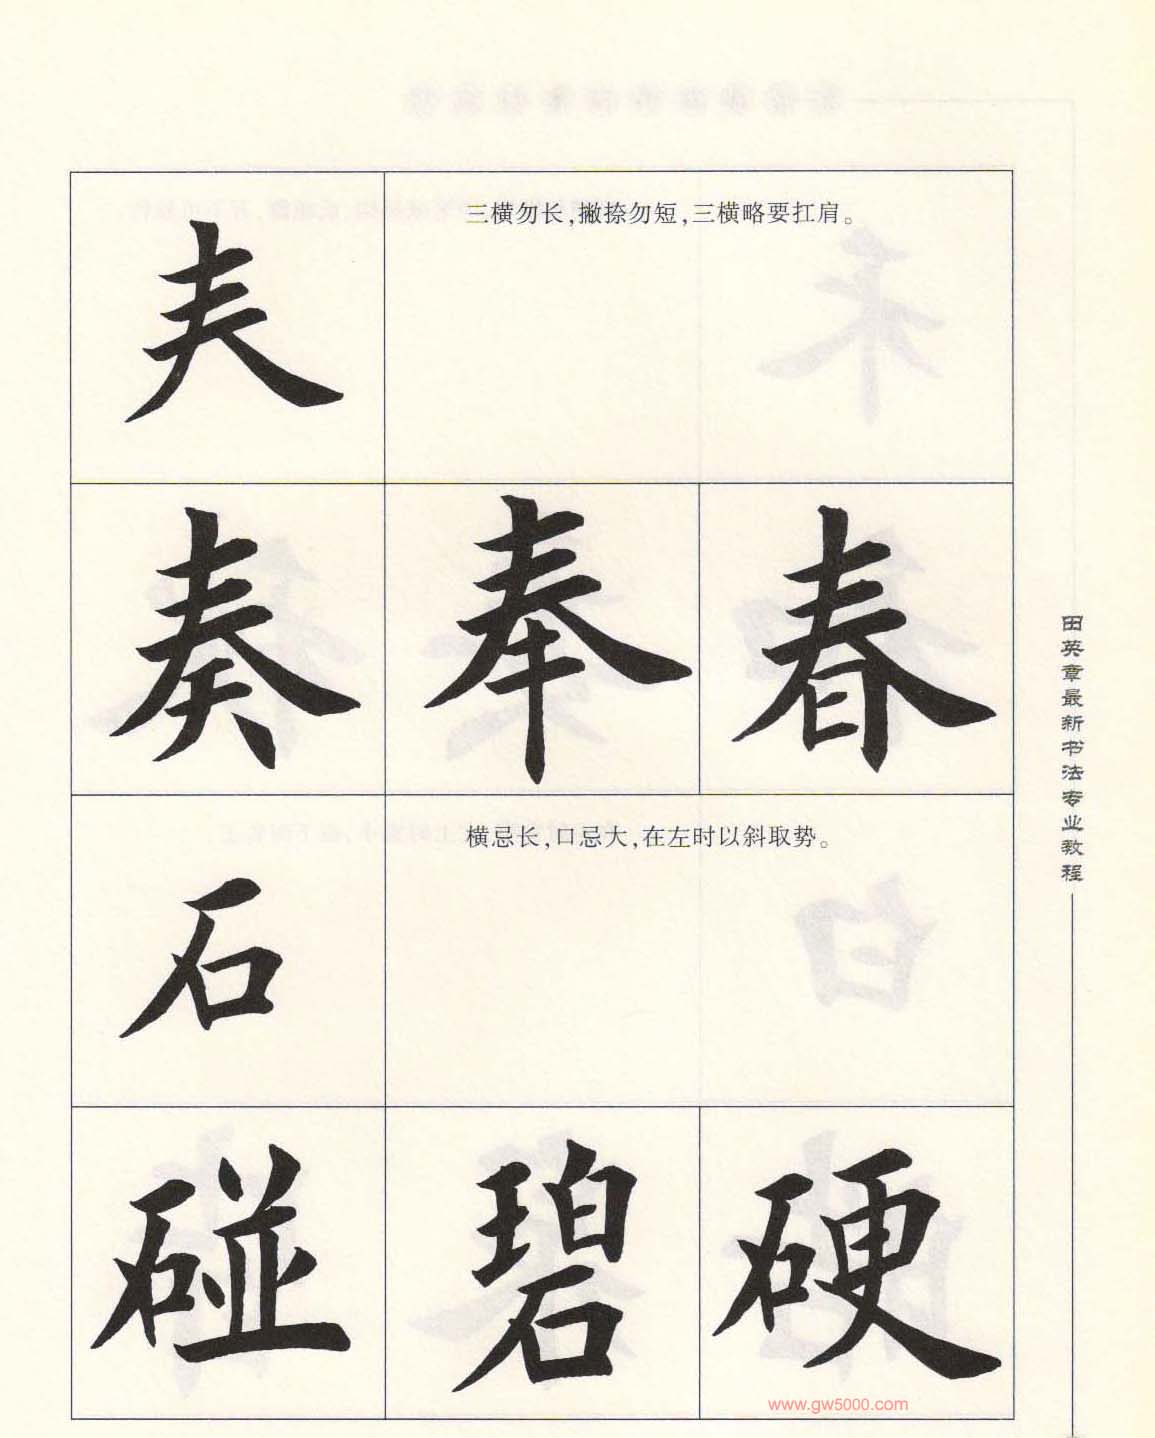 𡗗
三横勿长,撇捺勿短,三横略要扛肩。
奏 奉 春
石
横忌长,口忌大,在左时以斜取势。
碰 碧 硬
田英章最新书法专业教程
www.gw5000.com